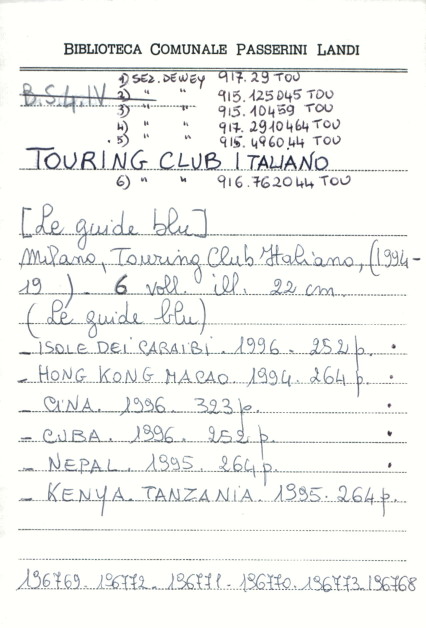 BIBLIOTECA COMUNALE PASSERINI LANDI
1) SEZ. DEWEY 917.29 TOU
B.S.4.IV 2) " " 915.125045 TOU
3) " " 915.10459 TOU
4) " " 917.2910464 TOU
5) " " 915.496044 TOU
TOURING CLUB ITALIANO
6) " " 916.762044 TOU
[Le guide blu]
Milano, Touring Club Italiano, (1994-
19 ). 6 voll. ill. 22 cm.
(Le guide blu)
- ISOLE DEI CARAIBI. 1996. 252 p.
- HONG KONG MACAO. 1994. 264 p.
- CINA. 1996. 323 p.
- CUBA. 1996. 252 p.
- NEPAL. 1995. 264 p.
- KENYA. TANZANIA. 1995. 264 p.
196769. 196772. 196771. 196770. 196773. 196768